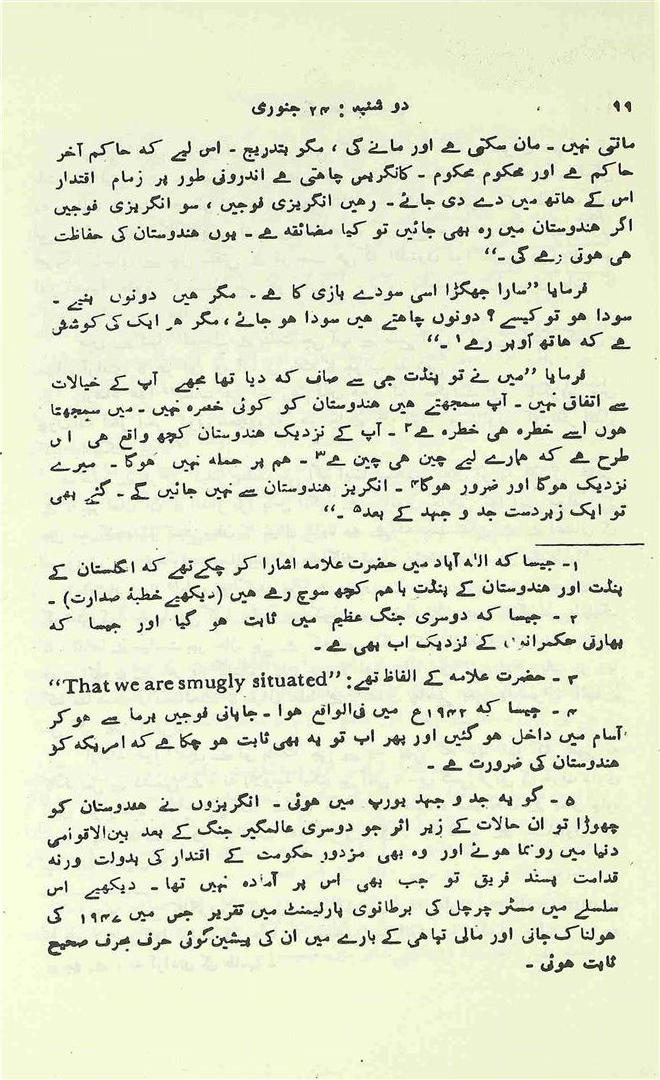 ۹۹
دو شنبہ : ۲۴ جنوری
مانتی نہیں ۔ مان سکتی ہے اور مانے گی ، مگر بتدریج ۔ اس لیے کہ حاکم آخر
حاکم ہے اور محکوم محکوم ۔ کانگریس چاہتی ہے اندرونی طور پر زمام اقتدار
اس کے ہاتھ میں دے دی جائے ۔ رہیں انگریزی فوجیں ، سو انگریزی فوجیں
اگر ہندوستان میں رہ بھی جائیں تو کیا مضائقہ ہے ۔ یوں ہندوستان کی حفاظت
ہی ہوتی رہے گی ۔“
فرمایا ”سارا جھگڑا اسی سودے بازی کا ہے ۔ مگر ہیں دونوں بنیے ۔
سودا ہو تو کیسے ؟ دونوں چاہتے ہیں سودا ہو جائے ، مگر ہر ایک کی کوشش
ہے کہ ہاتھ اُوپر رہے۱ ۔“
فرمایا ”میں نے تو پنڈت جی سے صاف کہہ دیا تھا مجھے آپ کے خیالات
سے اتفاق نہیں ۔ آپ سمجھتے ہیں ہندوستان کو کوئی خطرہ نہیں ۔ میں سمجھتا
ہوں اسے خطرہ ہی خطرہ ہے۲ ۔ آپ کے نزدیک ہندوستان کچھ واقع ہی اس
طرح ہے کہ ہمارے لیے چین ہی چین ہے۳ ۔ ہم پر حملہ نہیں ہوگا ۔ میرے
نزدیک ہوگا اور ضرور ہوگا۴ ۔ انگریز ہندوستان سے نہیں جائیں گے ۔ گئے بھی
تو ایک زبردست جد و جہد کے بعد۵ ۔“
۱۔ جیسا کہ الہ آباد میں حضرت علامہ اشارا کر چکے تھے کہ انگلستان کے
پنڈت اور ہندوستان کے پنڈت باہم کچھ سوچ رہے ہیں (دیکھیے خطبۂ صدارت) ۔
۲ ۔ جیسا کہ دوسری جنگ عظیم میں ثابت ہو گیا اور جیسا کہ
بھارتی حکمرانوں کے نزدیک اب بھی ہے ۔
۳ ۔ حضرت علامہ کے الفاظ تھے : "That we are smugly situated"
۴ ۔ جیسا کہ ۱۹۴۲ع میں فی الواقع ہوا ۔ جاپانی فوجیں برما سے ہو کر
آسام میں داخل ہو گئیں اور پھر اب تو یہ بھی ثابت ہو چکا ہے کہ امریکہ کو
ہندوستان کی ضرورت ہے ۔
۵ ۔ گو یہ جد و جہد یورپ میں ہوئی ۔ انگریزوں نے ہندوستان کو
چھوڑا تو ان حالات کے زیر اثر جو دوسری عالمگیر جنگ کے بعد بین الاقوامی
دنیا میں رونما ہوئے اور وہ بھی مزدور حکومت کے اقتدار کی بدولت ورنہ
قدامت پسند فریق تو جب بھی اس پر آمادہ نہیں تھا ۔ دیکھیے اس
سلسلے میں مسٹر چرچل کی برطانوی پارلیمنٹ میں تقریر جس میں ۱۹۴۷ کی
ہولناک جانی اور مالی تباہی کے بارے میں ان کی پیشین گوئی حرف بحرف صحیح
ثابت ہوئی ۔